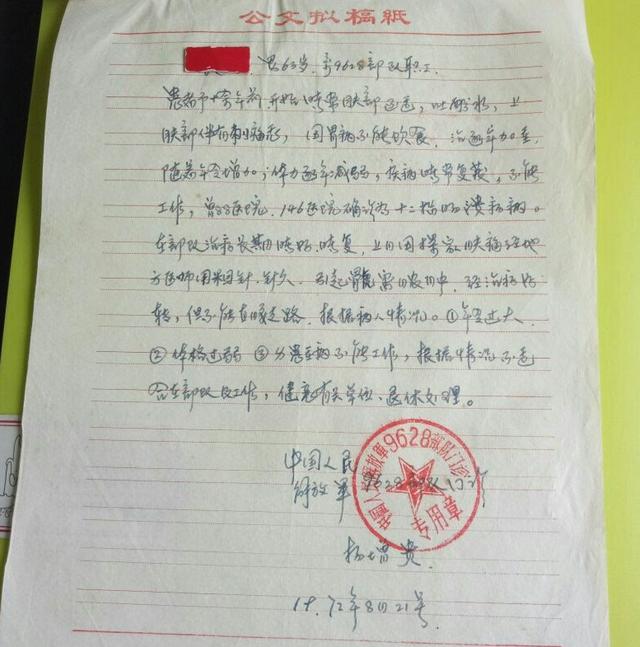 公文拟稿纸
男63岁,系9628部队职工
患者市十余年前开始时常腹部不适,吐酸水,上
腹部伴有刺痛感,因胃病不能饮食,治逐年加重
随着年令增加,体力逐年减弱,疾病时常复发,不能
工作,曾88医院、146医院确诊为十二指肠溃疡病。
在部政治病长期时好,时复,上月因探家腹痛经地
方医师用针,针久,引起,经治病好
转,但不能直腰走路,根据病人情况。①年令过大
②体格过弱 ③不能工作,根据情况不适
合在部队及工作,建议有关单位、退休处理。
中国人民
解放军9628部队门诊
中国人民解放军9628部队门诊
专用章
杨增贵
1972年8月21号